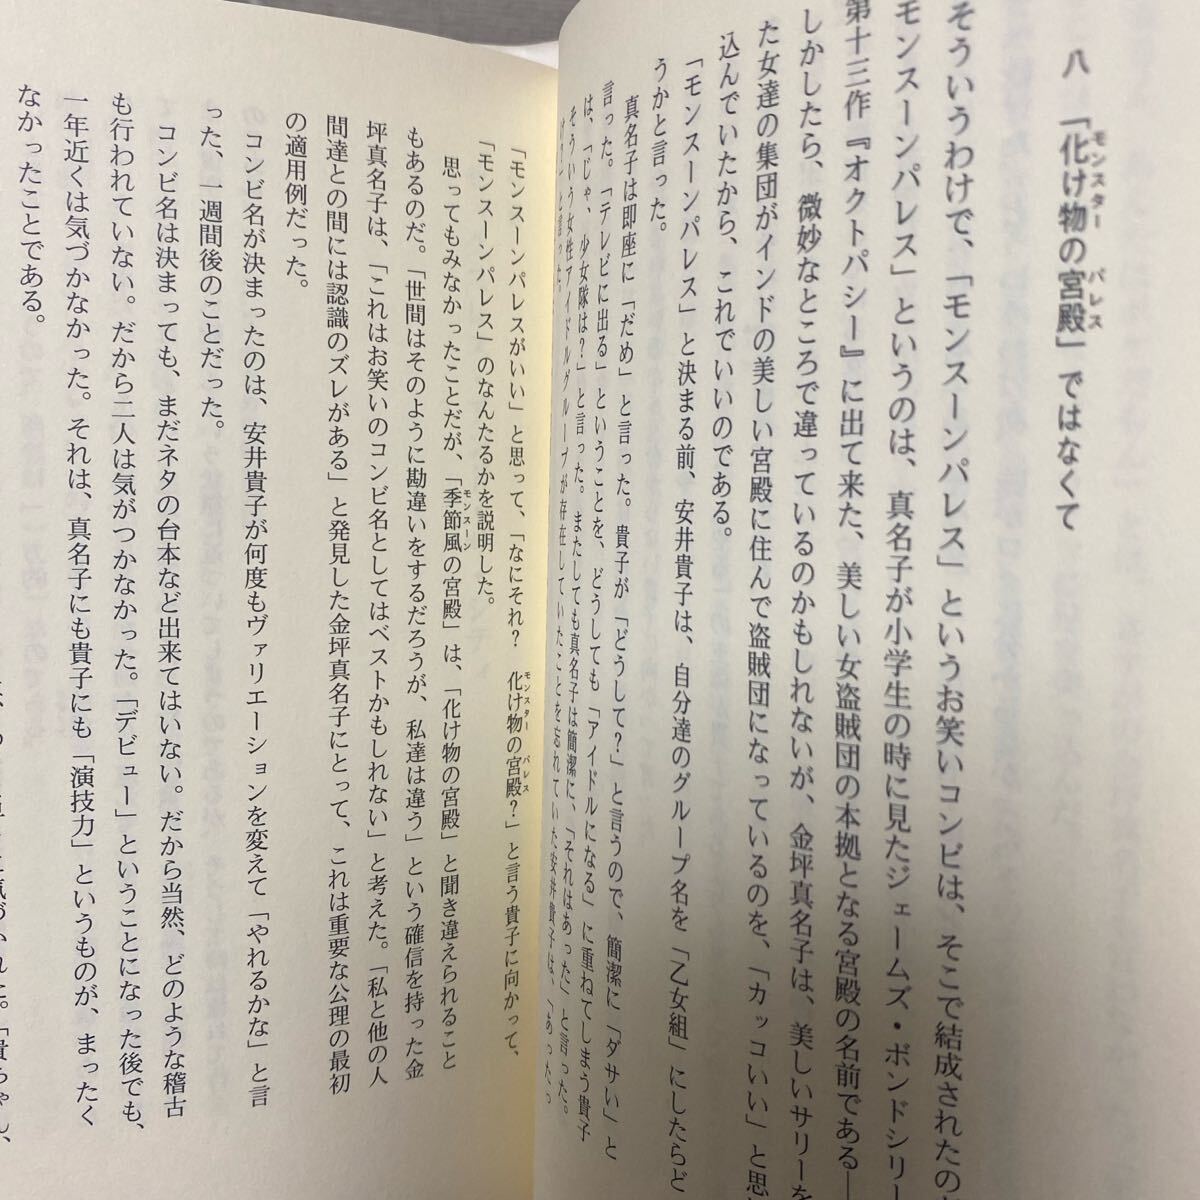 八　「化け物の宮殿」ではなくて
モンスター　パレス
そういうわけで、「モンスーンパレス」というお笑いコンビは、そこで結成されたの
モンスーンパレス」というのは、真名子が小学生の時に見たジェームズ・ボンドシリー
第十三作『オクトパシー』に出て来た、美しい女盗賊団の本拠となる宮殿の名前である―
しかしたら、微妙なところで違っているのかもしれないが、金坪真名子は、美しいサリーを
た女達の集団がインドの美しい宮殿に住んで盗賊団になっているのを、「カッコいい」と思
込んでいたから、これでいいのである。
「モンスーンパレス」と決まる前、安井貴子は、自分達のグループ名を「乙女組」にしたらど
うかと言った。
真名子は即座に「だめ」と言った。貴子が「どうして？」と言うので、簡潔に「ダサい」と
言った。「テレビに出る」ということを、どうしても「アイドルになる」に重ねてしまう貴子
は、「じゃ、少女隊は？」と言った。またしても真名子は簡潔に、「それはあった」と言った。
そういう女性アイドルグループが存在していたことを忘れていた安井貴子は、「あったっ
と言った。
「モンスーンパレスがいい」と思って、「なにそれ？　化け物の宮殿？」と言う貴子に向かって、
モンスター　パレス
「モンスーンパレス」のなんたるかを説明した。
思ってもみなかったことだが、「季節風の宮殿」は、「化け物の宮殿」と聞き違えられること
モンスーン
もあるのだ。「世間はそのように勘違いをするだろうが、私達は違う」という確信を持った金
坪真名子は、「これはお笑いのコンビ名としてはベストかもしれない」と考えた。「私と他の人
間達との間には認識のズレがある」と発見した金坪真名子にとって、これは重要な公理の最初
の適用例だった。
コンビ名が決まったのは、安井貴子が何度もヴァリエーションを変えて「やれるかな」と言
った、一週間後のことだった。
コンビ名は決まっても、まだネタの台本など出来てはいない。だから当然、どのような稽古
も行われていない。だから二人は気がつかなかった。「デビュー」ということになった後でも、
一年近くは気づかなかった。それは、真名子にも貴子にも「演技力」というものが、まったく
なかったことである。